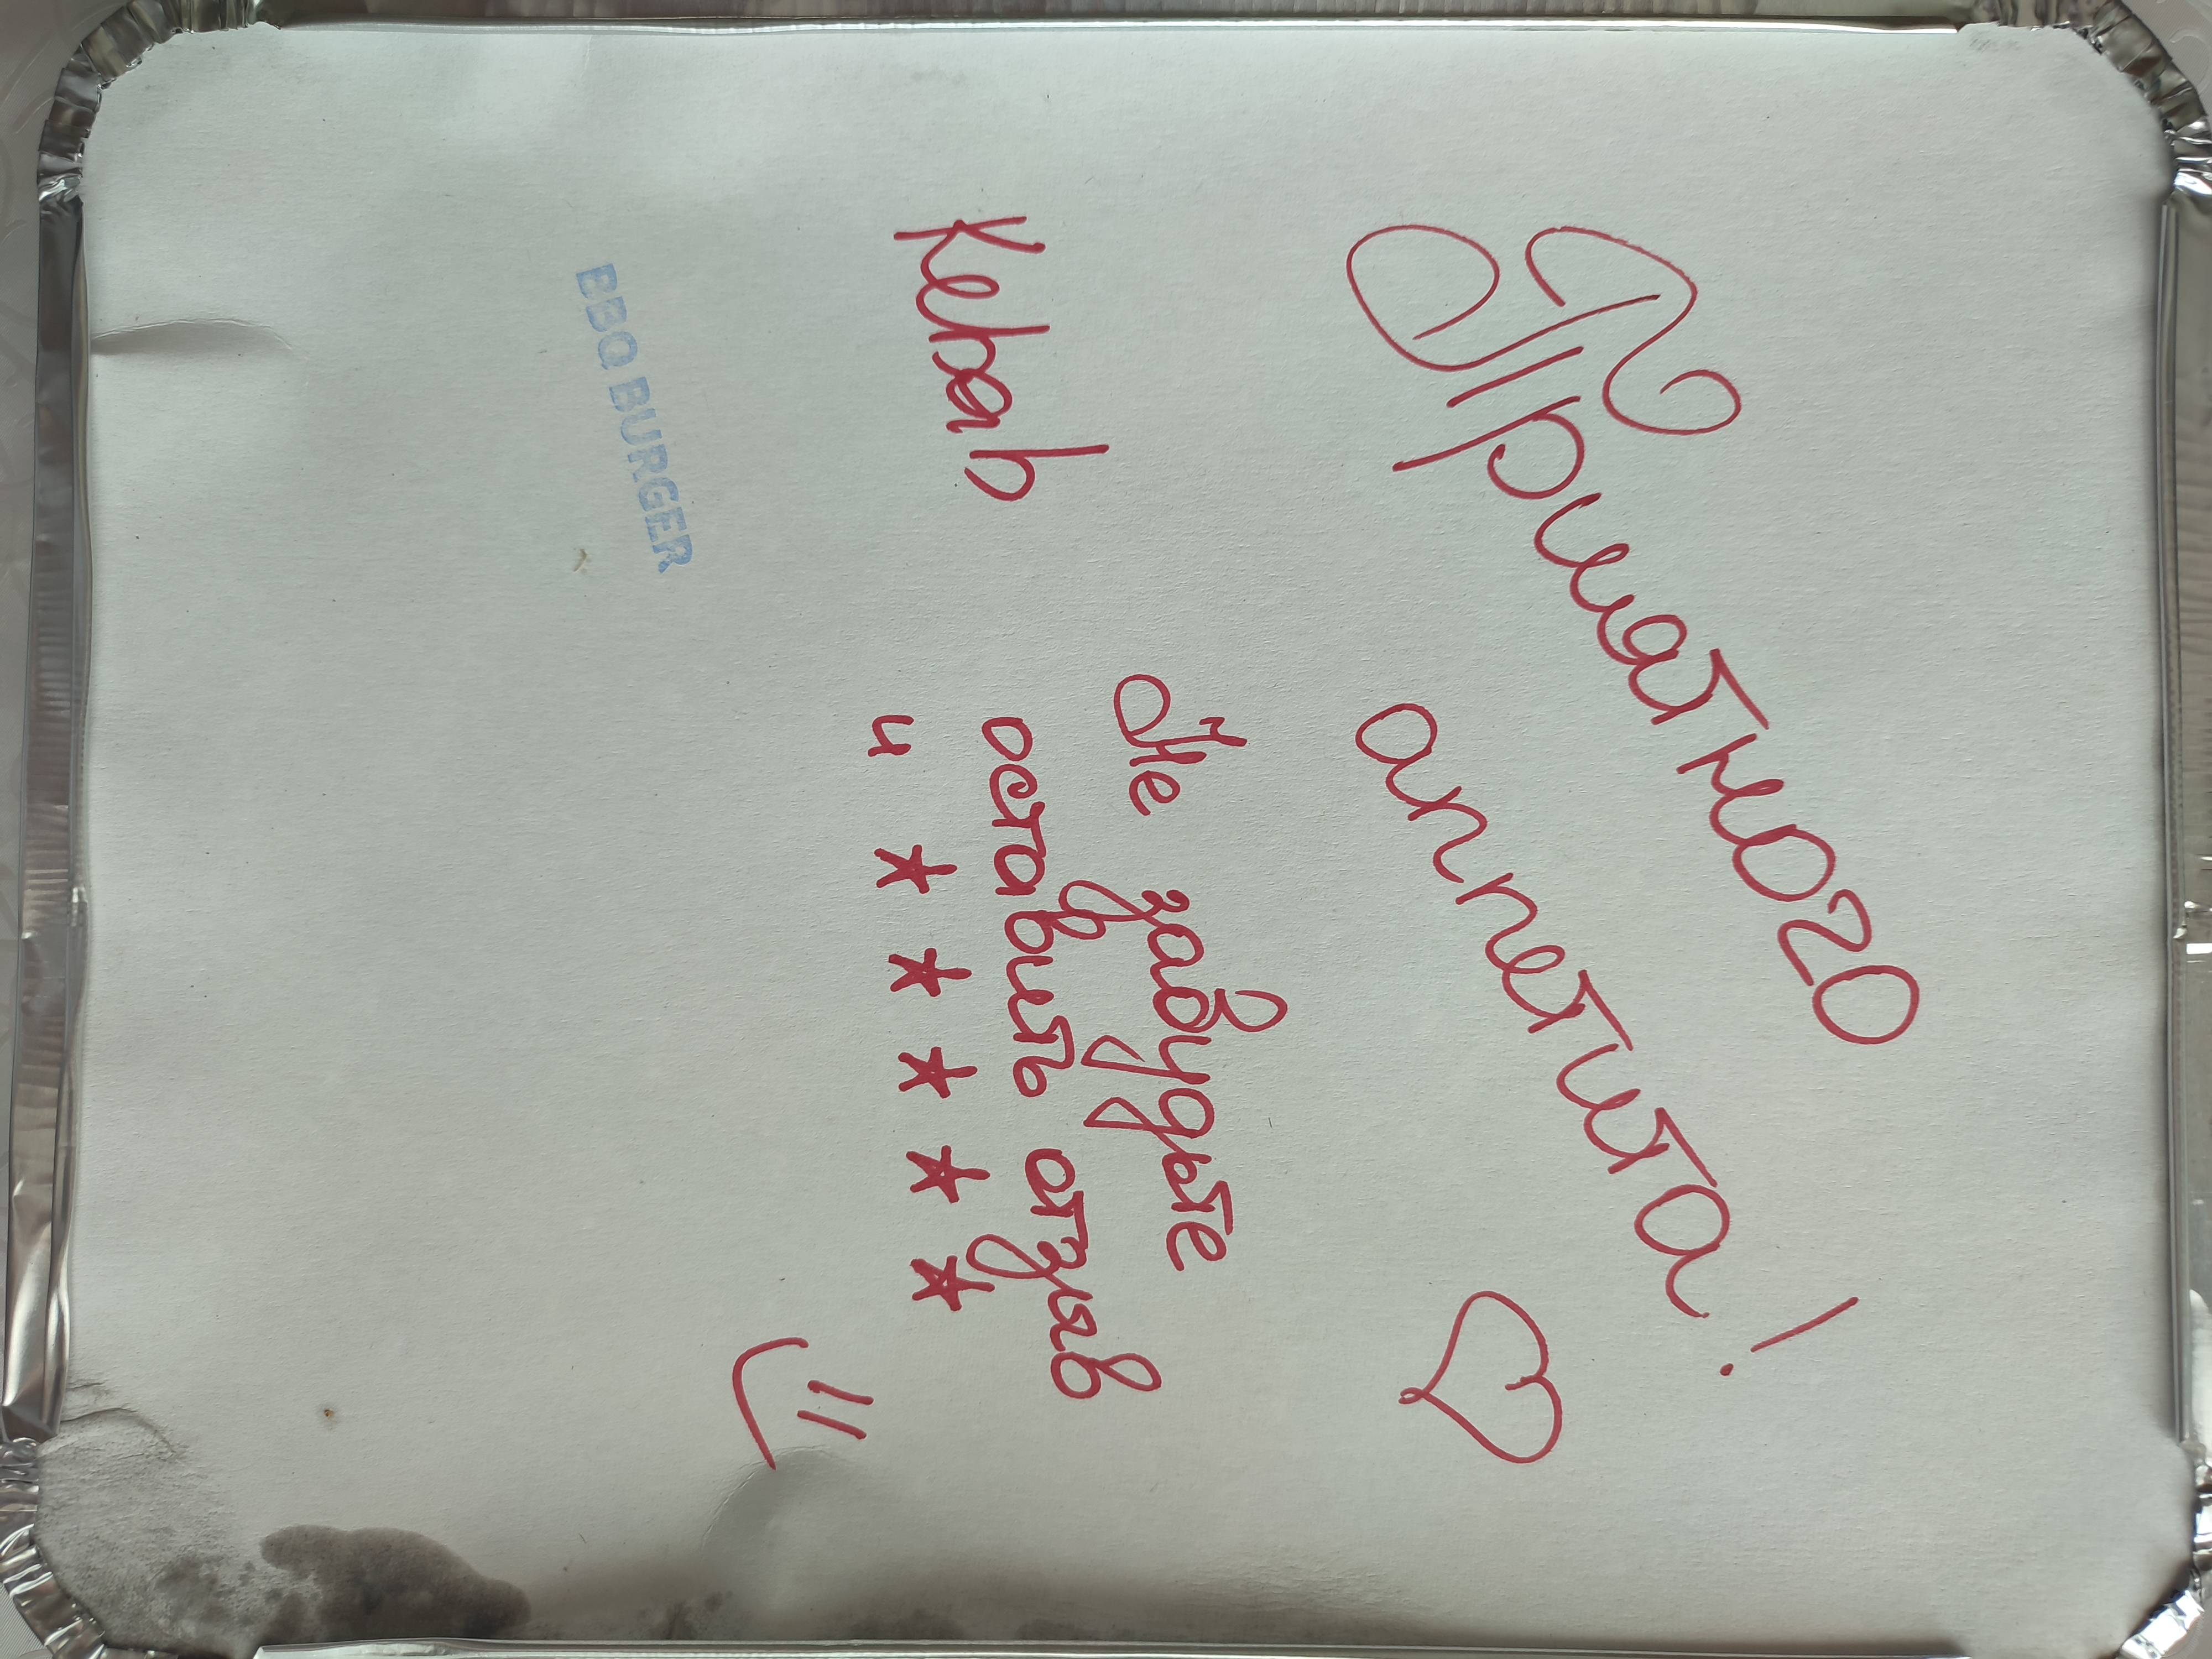 Приятного
аппетита! ♡
Kebab
Не забудьте
оставить отзыв
и ★ ★ ★ ★ ★
=)
BBQ BURGER